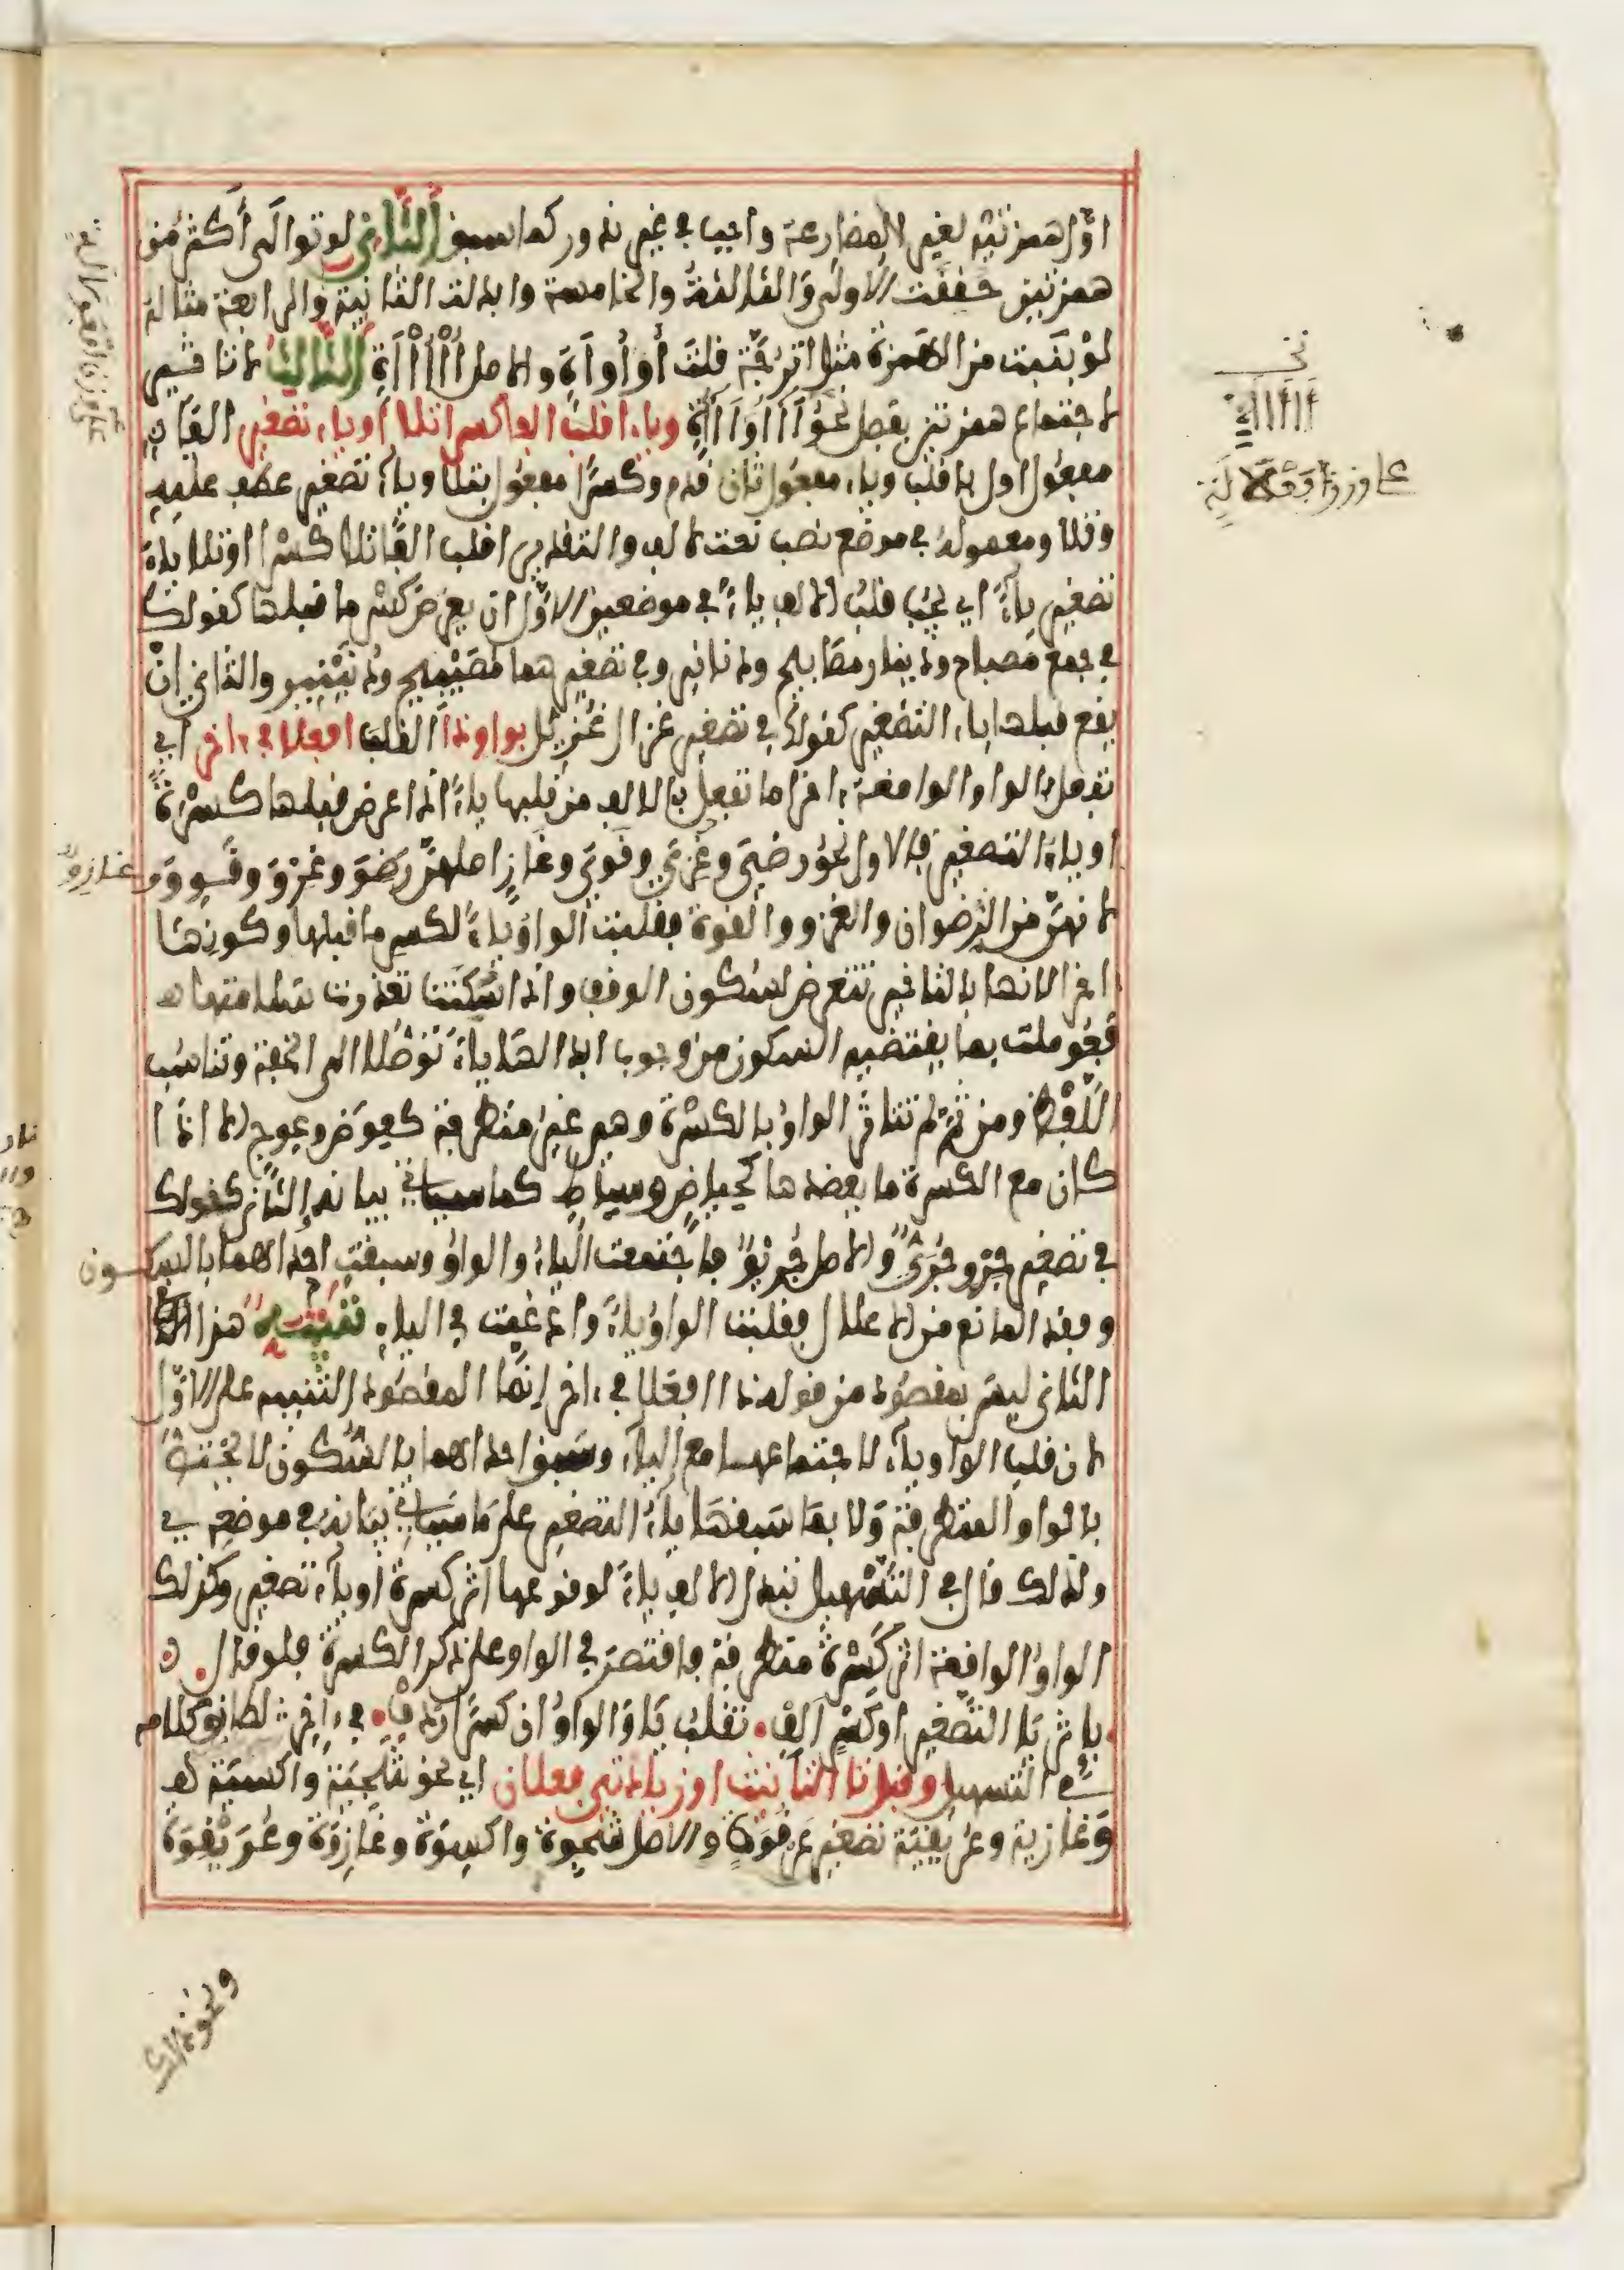 اوّل همزتيه لغير المضارعة واجيب في غير ندور كما سبق الثاني لو توالى أكثر من
همزتين حققت الاولى والثالثة والخامسة وابدلت الثانية والرابعة مثاله
لو بنيت من الهمزة مثل اترجّة قلت أوأوأة والاصل أأأأأة الثالث لا تاثير
لاجتماع همزتين بفصل نحو آاأوآاأة وياء اقلب الفا كسرا تلا او ياء تصغير الفا
مفعول اول باقلب وياء مفعول ثان قدم وكسرا مفعول بتلا وياء تصغير عطف عليه
وتلا ومعموله في موضع نصب نعت لالف والتقدير اقلب الفا تلا كسرا او تلا ياء
تصغير ياء اي يجب قلب الالف ياء في موضعين الاول ان يعرض كسر ما قبلها كقولك
في جمع مصباح ودينار مصابيح ودنانير وفي تصغيرهما مصيبيح ودنينير والثاني ان
يقع قبلها ياء التصغير كقولك في تصغير غزال غزيل بواو ذا القلب افعلا في ءاخر اي
تفعل بالواو الواقعة ءاخرا ما تفعل بالالف من قلبها ياء اذا عرض قبلها كسرة
او ياء التصغير فالاول نحو رضي وغزي وقوي وغاز اصلهن رضو وغزو وقوو وغازو
لانهن من الرضوان والغزو والقوة فقلبت الواو ياء لكسر ما قبلها وكونها
اخرا لانها بالتاخير تتعرض لسكون الوقف واذا سكنت تعذرت سلامتها
فعوملت بما يقتضيه السكون من وجوب ابدالها ياء توصلا الى الخفة وتناسب
اللفظ ومن ثم لم تتاثر الواو بالكسرة وهي غير متطرفة كعوض وعوج الا اذا
كان مع الكسرة ما يعضدها كحياض وسياط كما سياتي بيانه الثاني كقولك
في تصغير جرو جري والاصل جريو فاجتمعت الياء والواو وسبقت احداهما بالسكون
وفقد المانع من الاعلال فقلبت الواو ياء وادغمت في الياء تنبيه هذا
الثاني ليس بمقصود من قوله ذا افعلا في ءاخر انما المقصود التنبيه على الاول
لان قلب الواو ياء لاجتماعها مع الياء وسبق احداهما بالسكون لا يختص
بالواو المتطرفة ولا بما سبقها ياء التصغير على ما سياتي بيانه في موضعه
ولذلك قال في التسهيل تبدل الالف ياء لوقوعها اثر كسرة او ياء تصغير وكذلك
الواو الواقعة اثر كسرة متطرفة فاقتصر في الواو على ذكر الكسرة فلو قال
باثر يا التصغير او كسر الف تقلب يا والواو ان كسرا ردف في ءاخر لطابق كلامه
في التسهيل وقبل تا التانيث او زيادتي فعلان اي نحو شجية واكسية
وغازية وعريقية تصغير عرقوة والاصل شجوة واكسوة وغازوة وعريقوة
ونحو ذلك
نحو
أاأاأة
على وزن